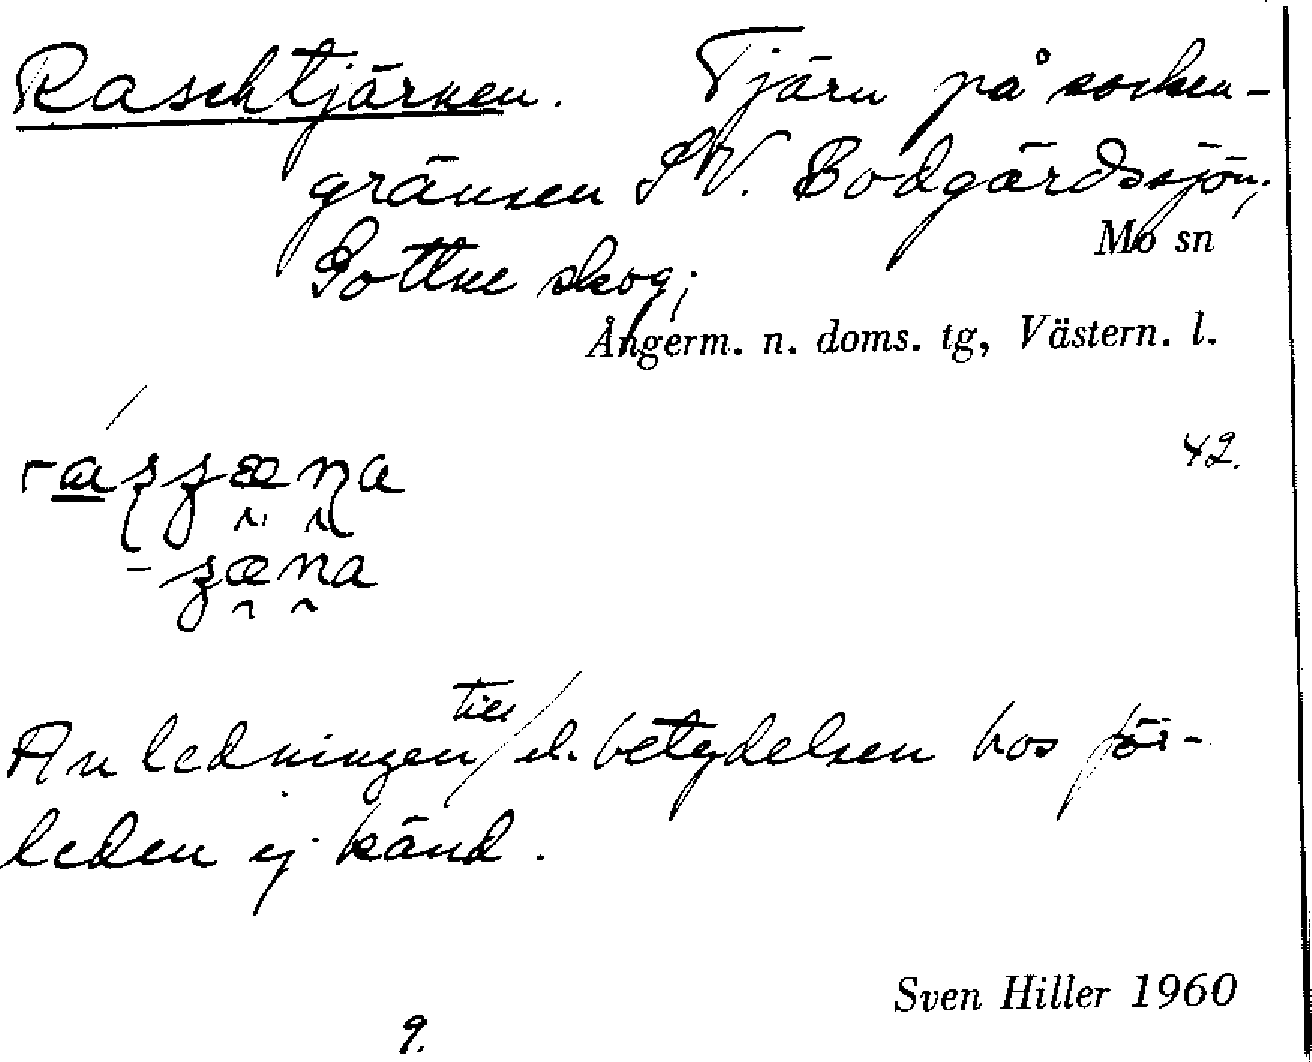 Raschtjärnen. Tjärn på socken-
gränsen SV. Bodgärdssjön;
Gottne skog;
Mo sn
Ångerm. n. doms. tg, Västern. l.
42.
Anledningen till el. betydelsen hos för-
leden ej känd.
Sven Hiller 1960
9.